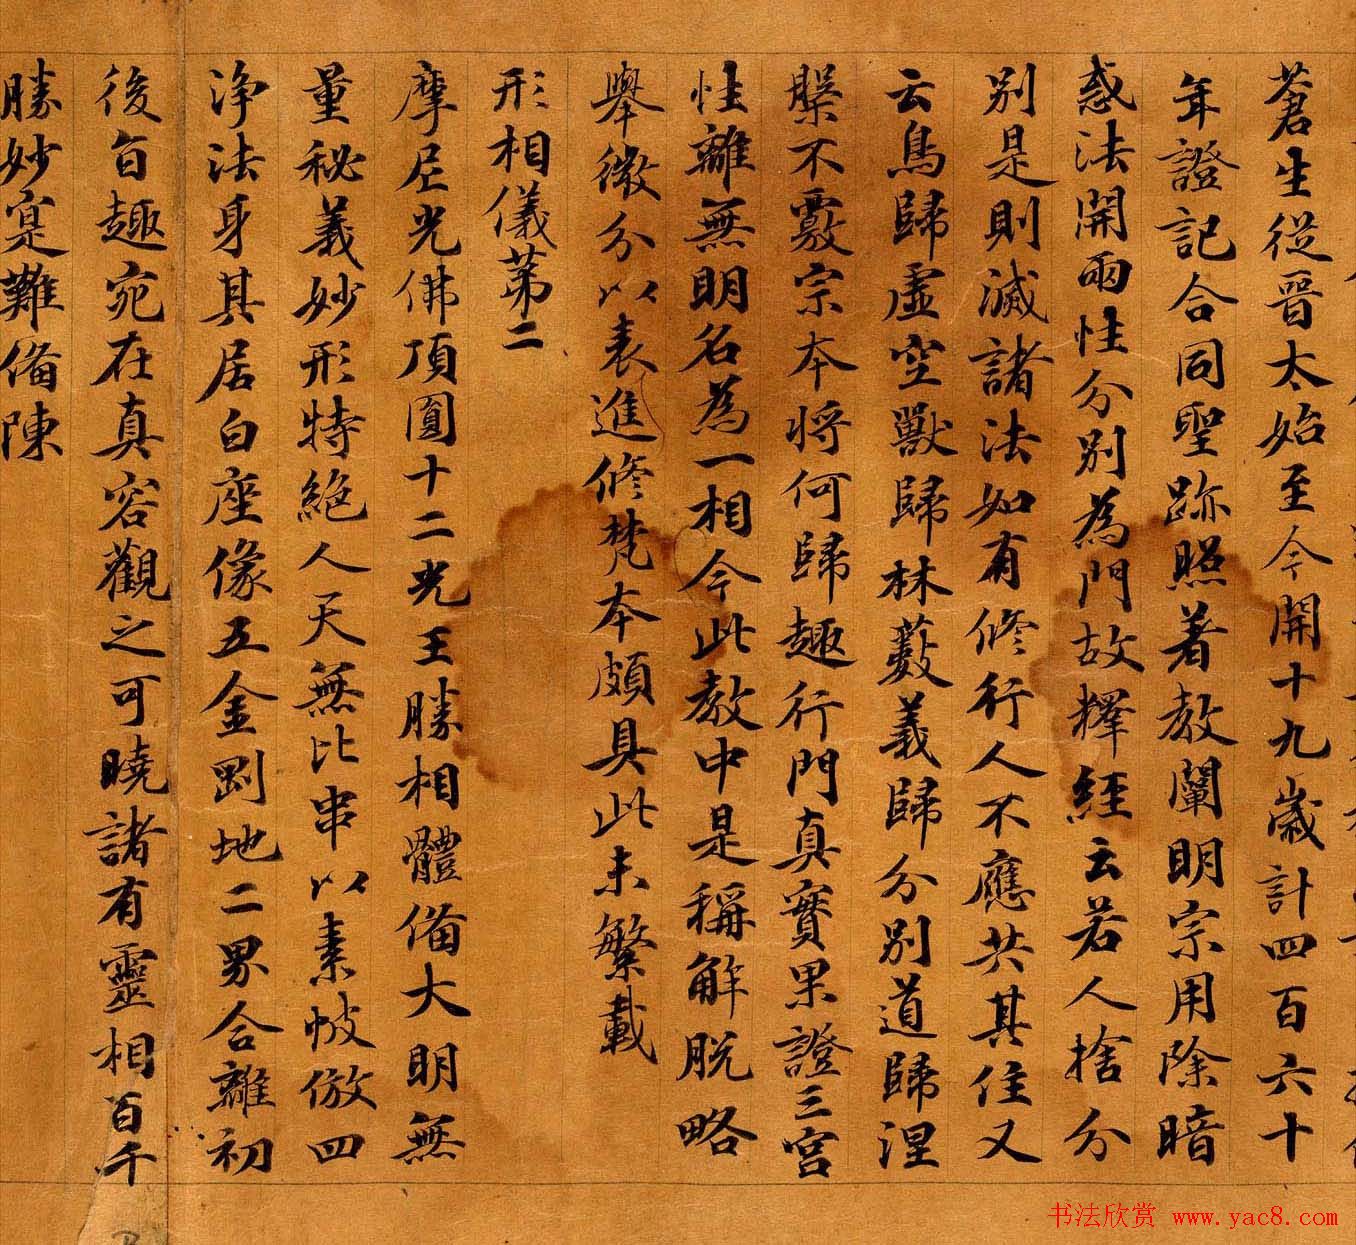 蒼生從晉太始至今開十九歲計四百六十
年證記合同聖跡照著教闡明宗用除暗
惑法開兩性分別為門故釋經云若人捨分
別是則滅諸法如有修行人不應共其住又
云鳥歸虛空獸歸林藪義歸分別道歸涅
槃不覈宗本將何歸趣行門真實果證三宮
性離無明名為一相今此教中是稱解脫略
舉微分以表進修梵本頗具此未繁載
形相儀第二
摩尼光佛頂圓十二光王勝相體備大明無
量秘義妙形特絕人天無比串以素帔倣四
淨法身其居白座像五金剛地二界合離初
後旨趣宛在真容觀之可曉諸有靈相百千
勝妙寔難備陳
书法欣赏 www.yac8.com